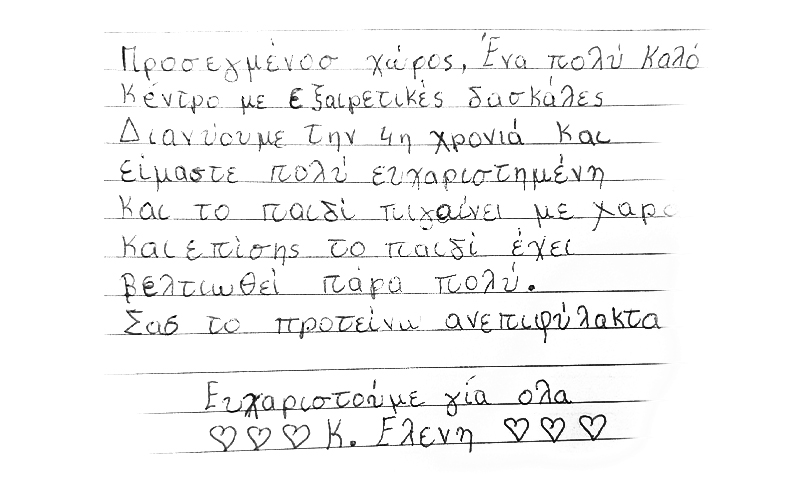 Προσεγμένοσ χώρος, Ένα πολύ Καλό
Κέντρο με εξαιρετικές δασκάλες
Διανύουμε την 4η χρονιά και
είμαστε πολύ ευχαριστημένη
Και το παιδί πιγαίνει με χαρα
Και επίσης το παιδί έχει
βελτιωθεί πάρα πολύ.
Σασ το προτείνω ανεπιφύλακτα
Ευχαριστούμε γία ολα
♡♡♡ Κ. Ελενη ♡♡♡